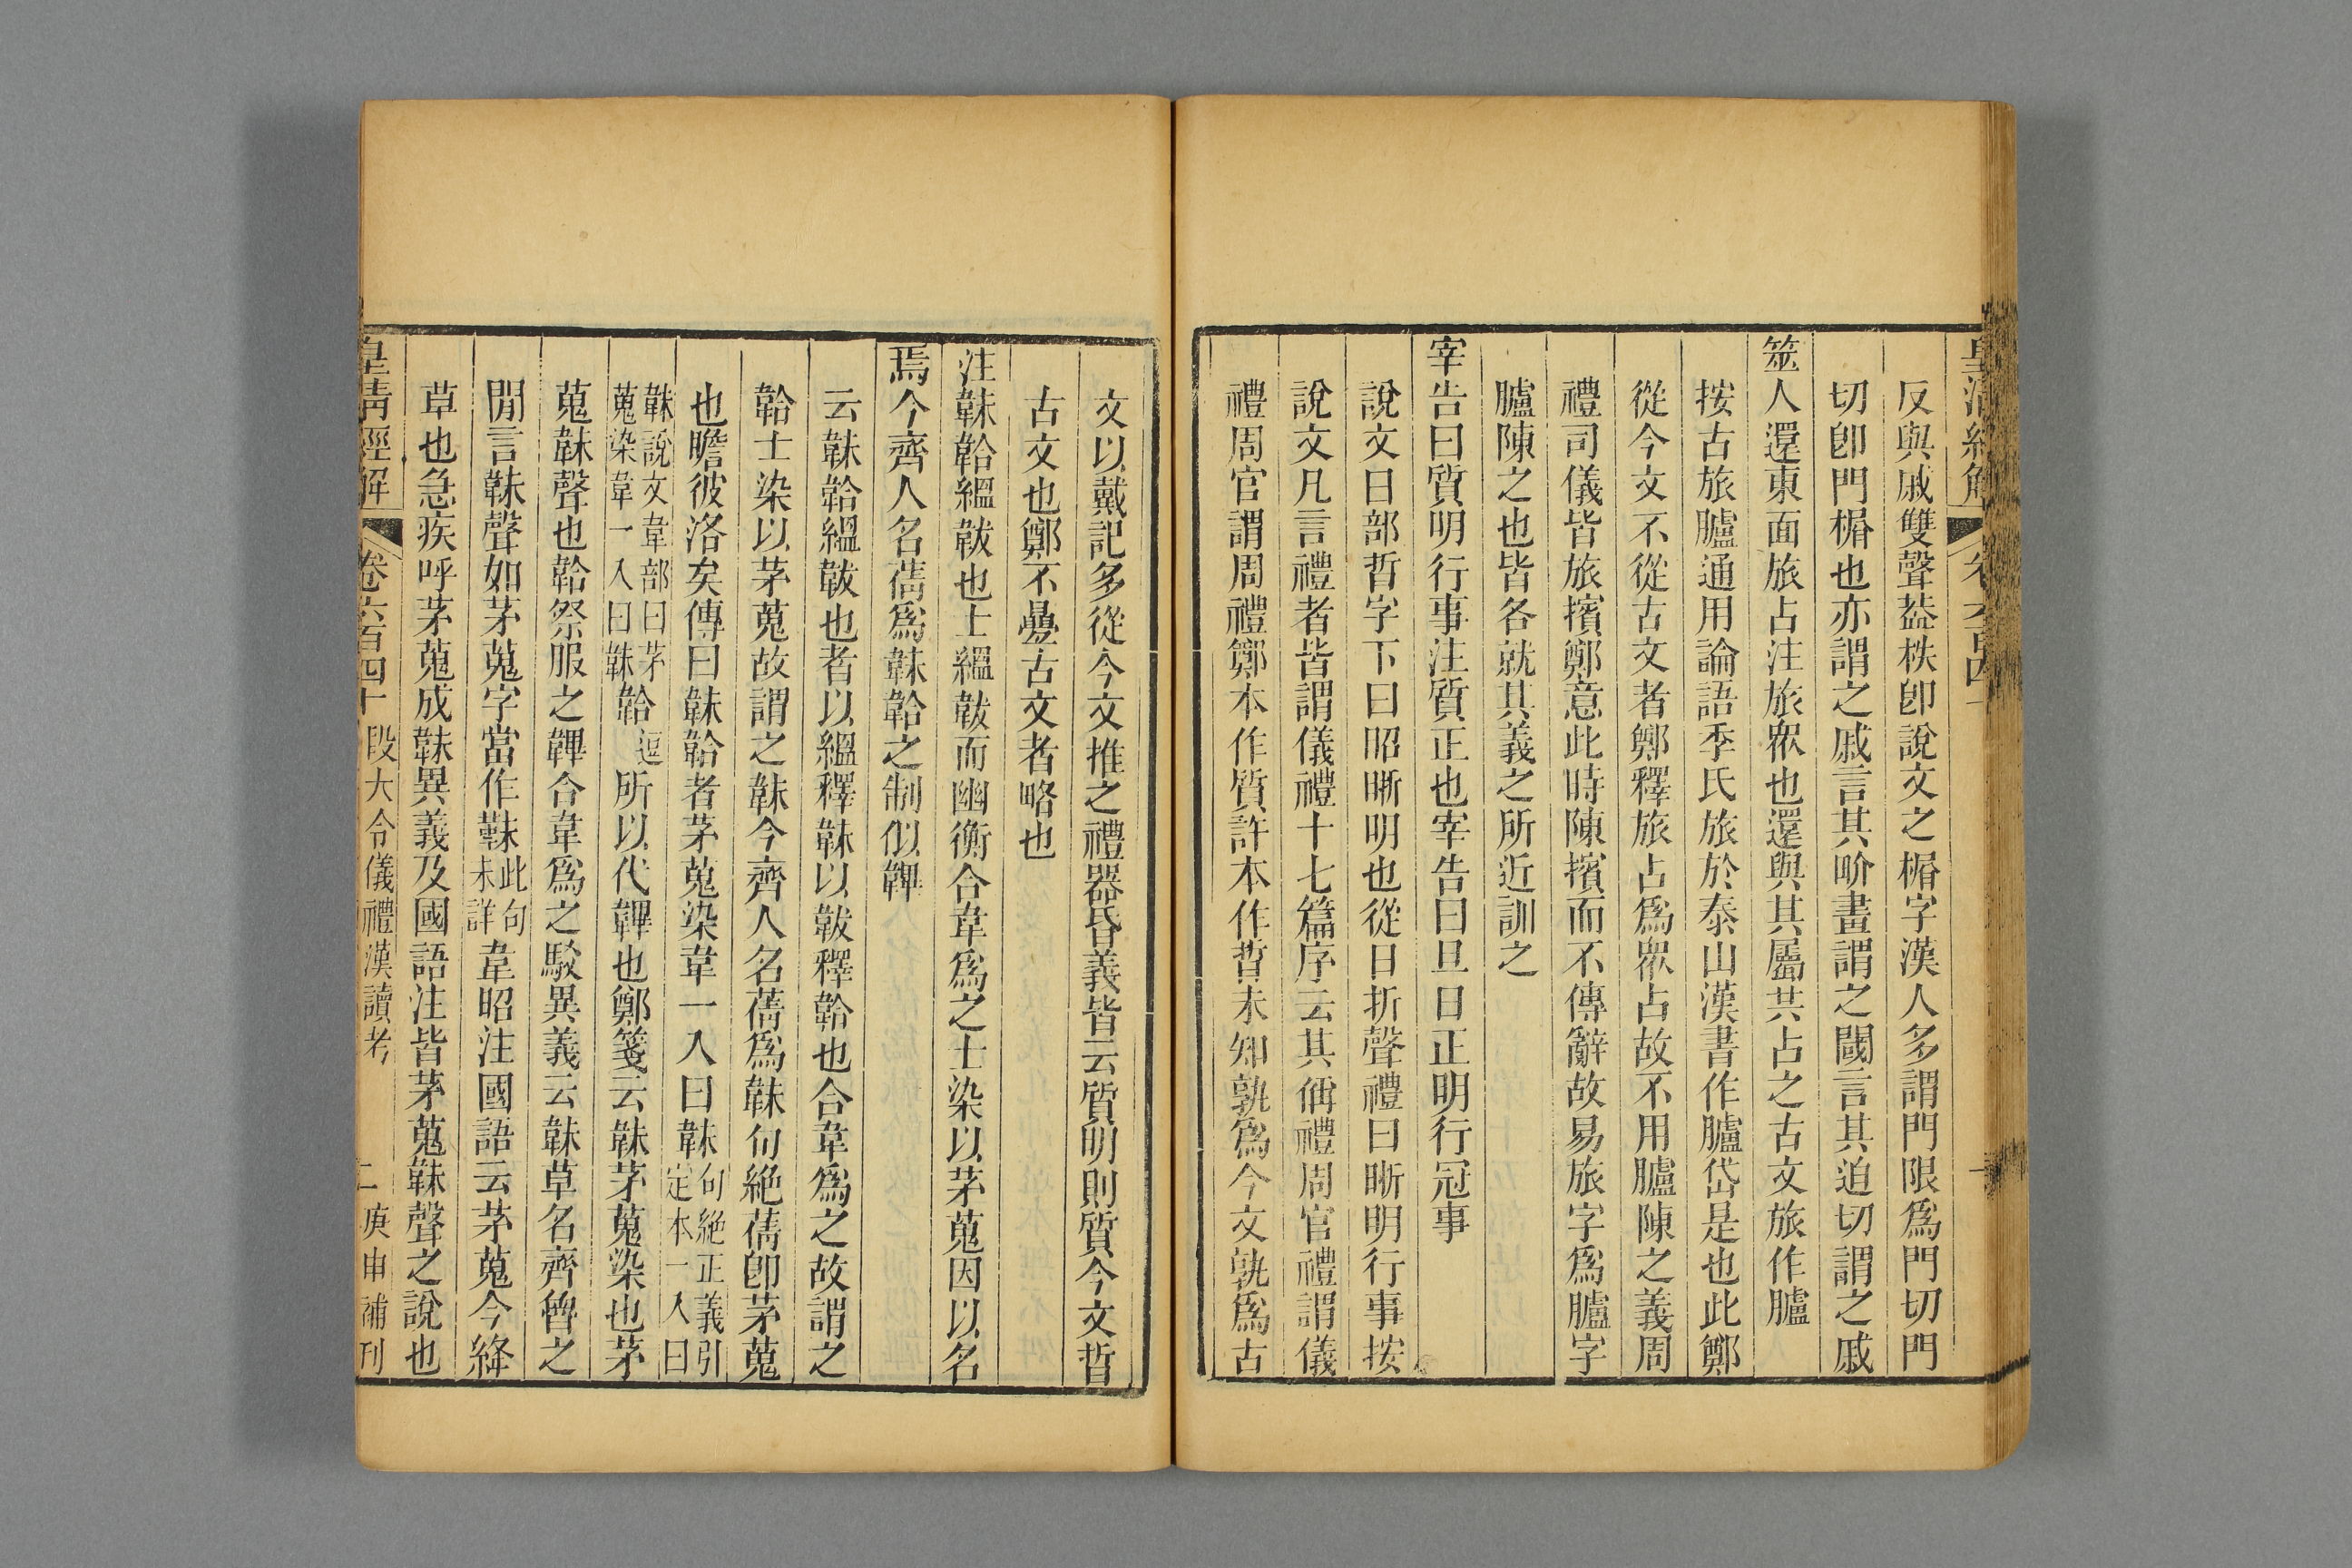 反與戚雙聲葢柣卽說文之榍字漢人多謂門限爲門切門
切卽門榍也亦謂之戚言其畍畫謂之閾言其迫切謂之戚
筮人還東面旅占注旅衆也還與其屬共占之古文旅作臚
按古旅臚通用論語季氏旅於泰山漢書作臚岱是也此鄭
從今文不從古文者鄭釋旅占爲衆占故不用臚陳之義周
禮司儀皆旅擯鄭意此時陳擯而不傳辭故易旅字爲臚字
臚陳之也皆各就其義之所近訓之
宰告曰質明行事注質正也宰告曰旦日正明行冠事
說文日部晢字下曰昭晣明也從日折聲禮曰晣明行事按
說文凡言禮者皆謂儀禮十七篇序云其偁禮周官禮謂儀
禮周官謂周禮鄭本作質許本作晢未知孰爲今文孰爲古
文以戴記多從今文推之禮器昏義皆云質明則質今文晢
古文也鄭不疊古文者略也
注韎韐縕韍也士縕韍而幽衡合韋爲之士染以茅蒐因以名
焉今齊人名蒨爲韎韐之制似韠
云韎韐縕韍也者以縕釋韎以韍釋韐也合韋爲之故謂之
韐士染以茅蒐故謂之韎今齊人名蒨爲韎句絶蒨卽茅蒐
也瞻彼洛矣傳曰韎韐者茅蒐染韋一入曰韎句絶正義引定本一入曰
韎說文韋部曰茅蒐染韋一入曰韎韐逗所以代韠也鄭箋云韎茅蒐染也茅
蒐韎聲也韐祭服之韠合韋爲之駮異義云韎草名齊魯之
閒言韎聲如茅蒐字當作韎此句未詳韋昭注國語云茅蒐今絳
草也急疾呼茅蒐成韎異義及國語注皆茅蒐韎聲之說也
皇淸經解 卷六百四十 段大令儀禮漢讀考 二 庚申補刊